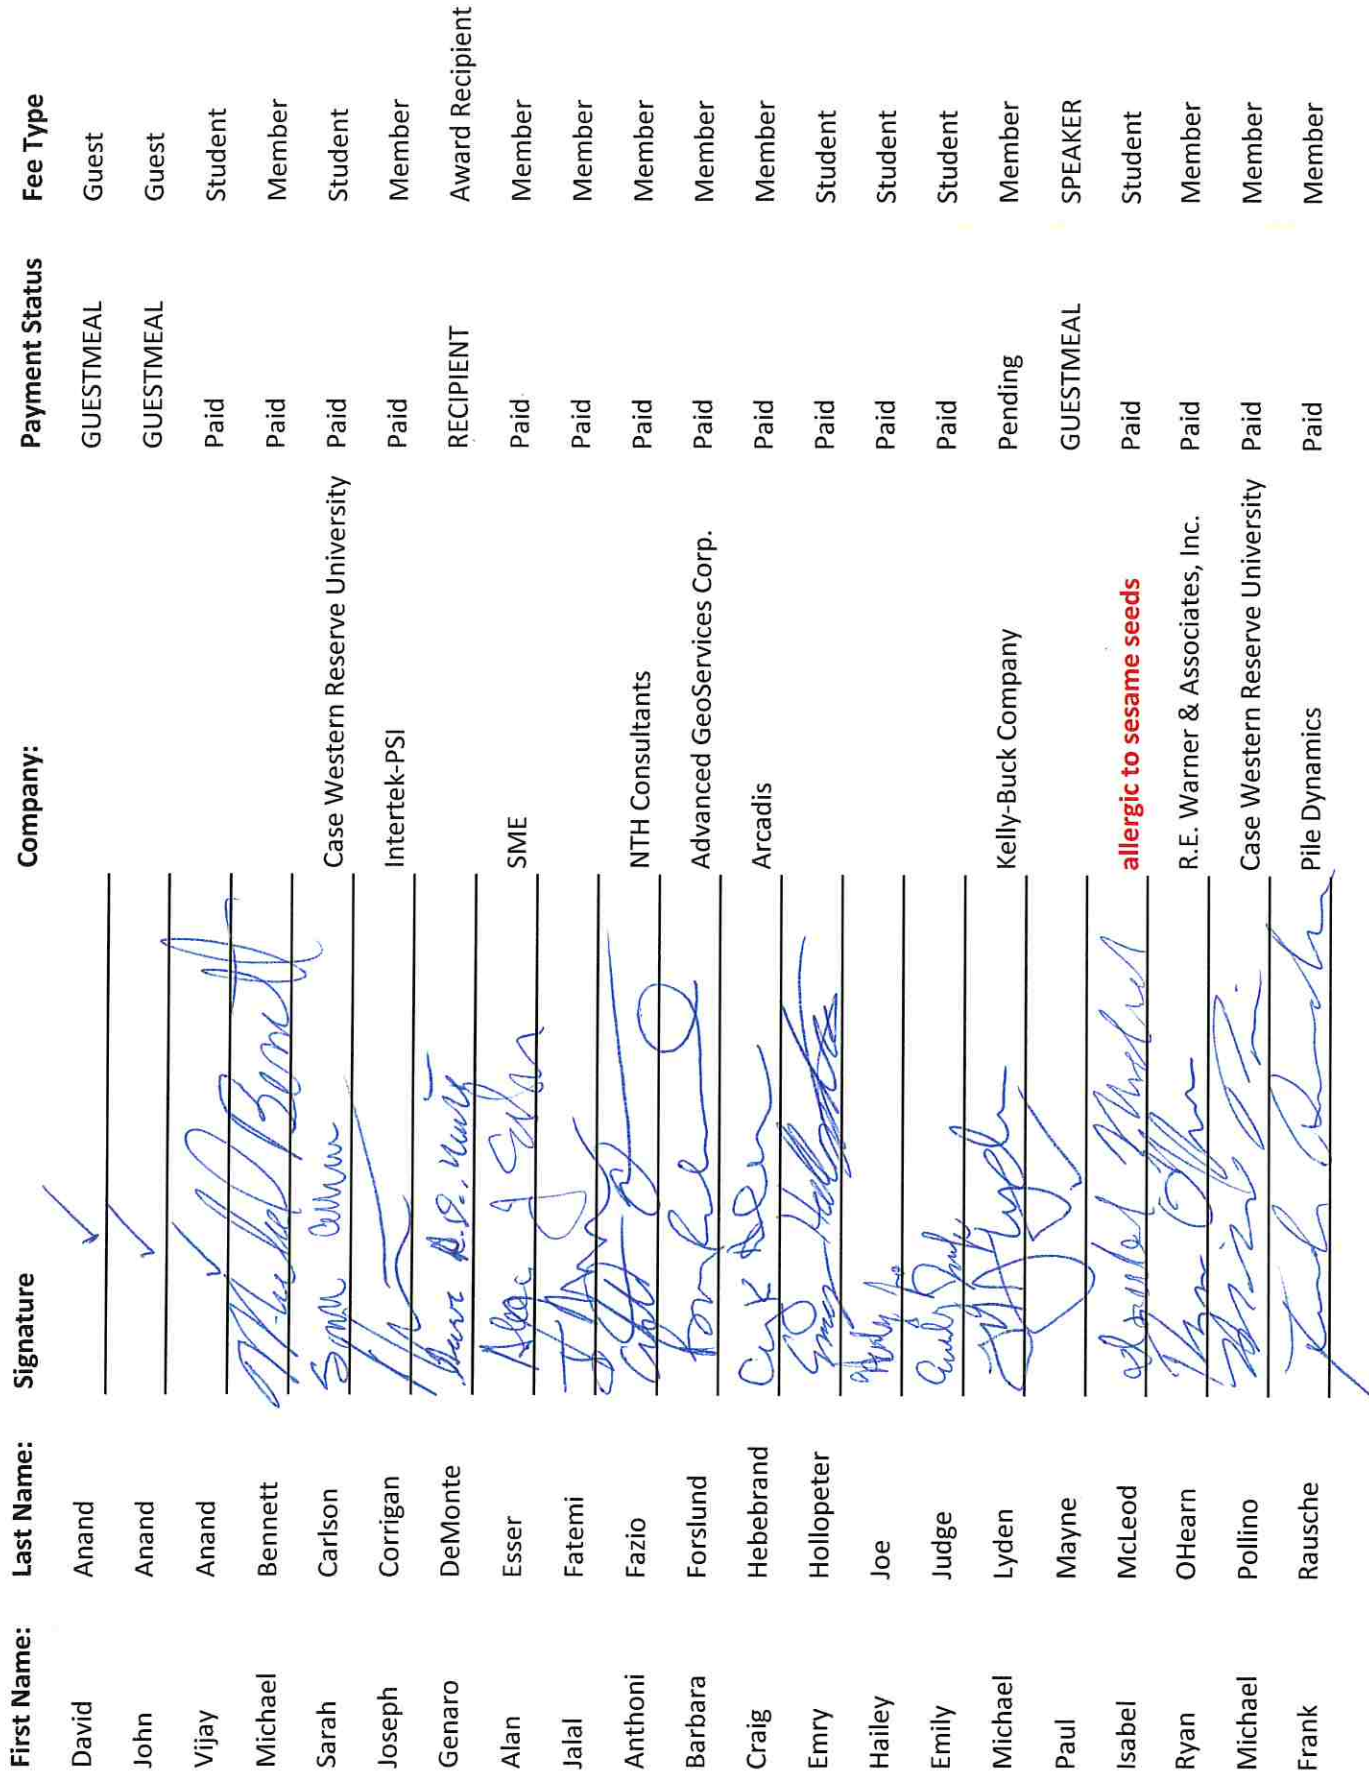 First Name: Last Name: Signature Company: Payment Status Fee Type
David Anand GUESTMEAL Guest
John Anand GUESTMEAL Guest
Vijay Anand Paid Student
Michael Bennett Michael Bennett Paid Member
Sarah Carlson Case Western Reserve University Paid Student
Joseph Corrigan Intertek-PSI Paid Member
Genaro DeMonte RECIPIENT Award Recipient
Alan Esser SME Paid Member
Jalal Fatemi Paid Member
Anthoni Fazio NTH Consultants Paid Member
Barbara Forslund Advanced GeoServices Corp. Paid Member
Craig Hebebrand Arcadis Paid Member
Emry Hollopeter Paid Student
Hailey Joe Paid Student
Emily Judge Paid Student
Michael Lyden Kelly-Buck Company Pending Member
Paul Mayne GUESTMEAL SPEAKER
Isabel McLeod allergic to sesame seeds Paid Student
Ryan OHearn R.E. Warner & Associates, Inc. Paid Member
Michael Pollino Case Western Reserve University Paid Member
Frank Rausche Pile Dynamics Paid Member